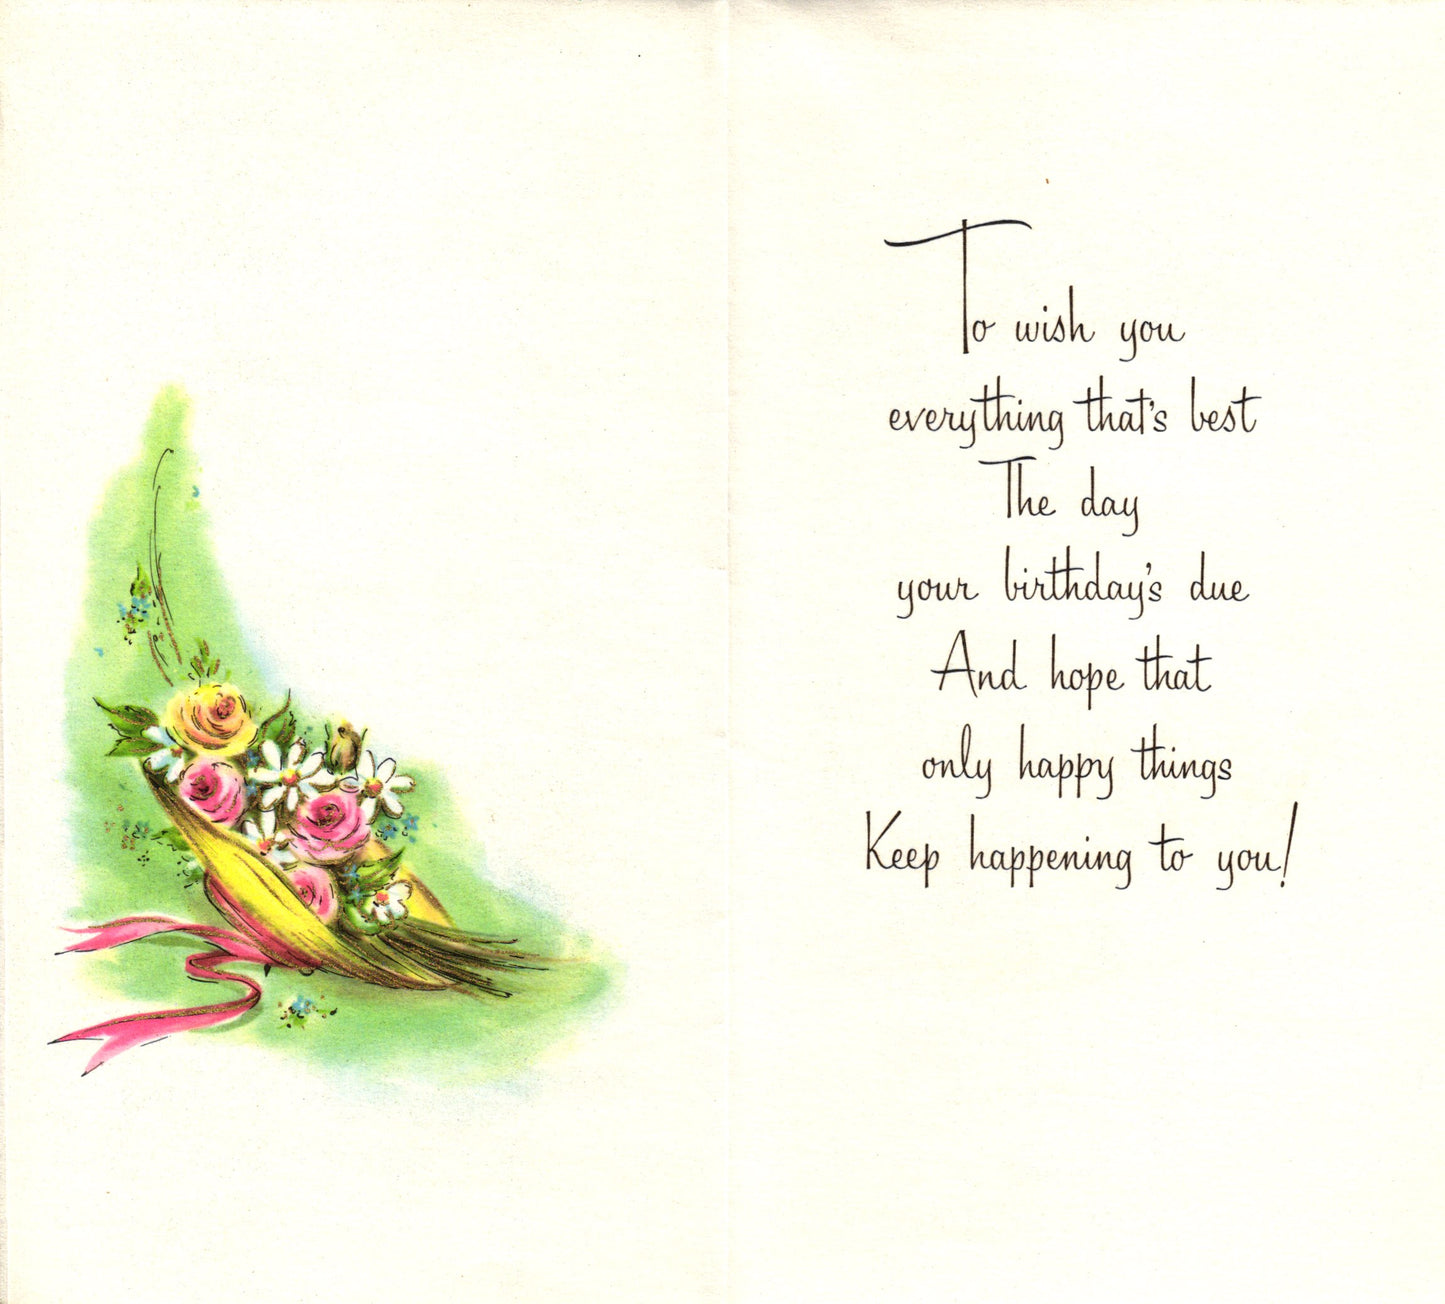 To wish you
everything that's best
The day
your birthday's due
And hope that
only happy things
Keep happening to you!